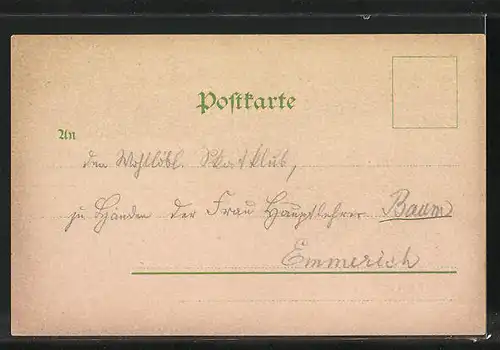 Postkarte
An
den Wohllöbl. Skatklub,
zu Händen der Frau Hauptlehrer Baum
Emmerich